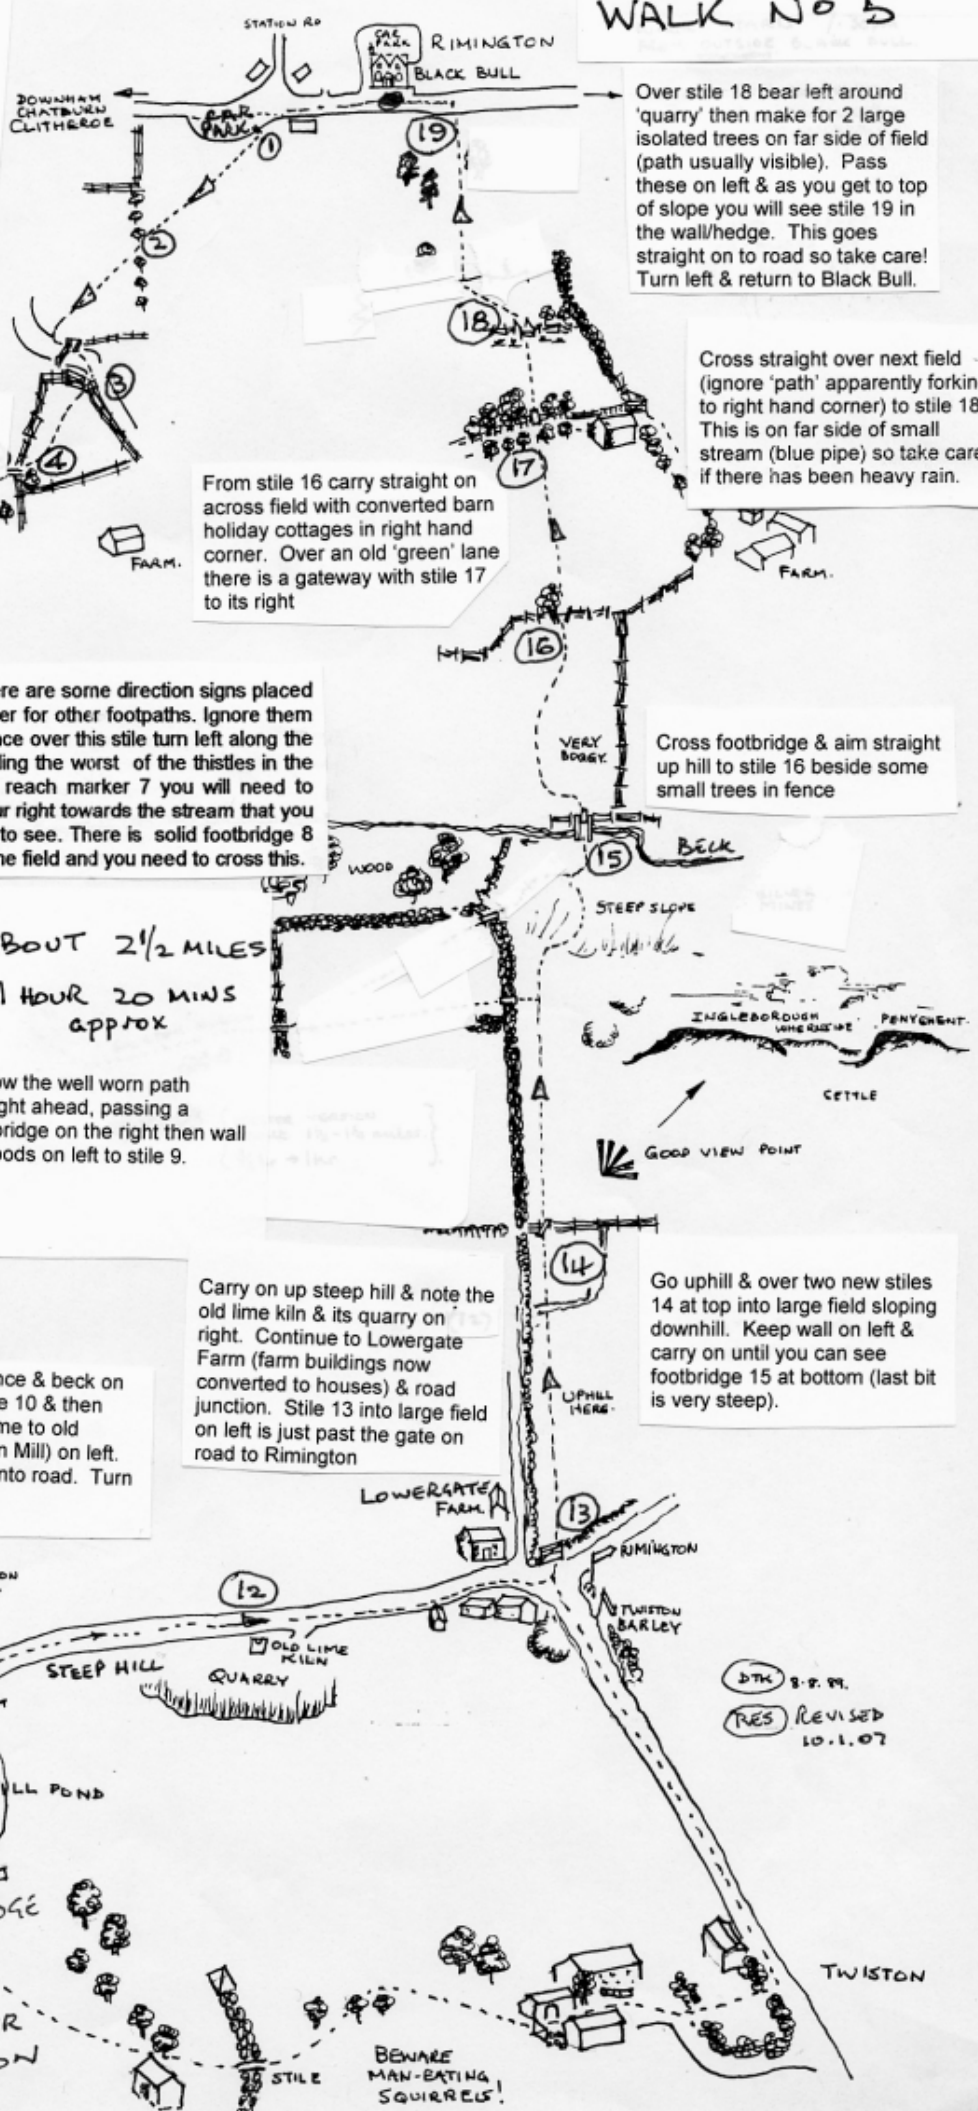 WALK No 5
STATION RD
CAR
PARK
RIMINGTON
BLACK BULL
DOWNHAM
CHATBURN
CLITHEROE
CAR
PARK
1
19
Over stile 18 bear left around
'quarry' then make for 2 large
isolated trees on far side of field
(path usually visible). Pass
these on left & as you get to top
of slope you will see stile 19 in
the wall/hedge. This goes
straight on to road so take care!
Turn left & return to Black Bull.
2
18
3
Cross straight over next field
(ignore 'path' apparently forkin
to right hand corner) to stile 18
This is on far side of small
stream (blue pipe) so take care
if there has been heavy rain.
4
17
From stile 16 carry straight on
across field with converted barn
holiday cottages in right hand
corner. Over an old 'green' lane
there is a gateway with stile 17
to its right
FARM.
FARM.
16
re are some direction signs placed
er for other footpaths. Ignore them
nce over this stile turn left along the
ling the worst of the thistles in the
reach marker 7 you will need to
ur right towards the stream that you
to see. There is solid footbridge 8
ne field and you need to cross this.
VERY
BOGGY.
Cross footbridge & aim straight
up hill to stile 16 beside some
small trees in fence
15
BECK
WOOD
STEEP SLOPE
BOUT 2 1/2 MILES
1 HOUR 20 MINS
approx
INGLEBOROUGH
WHERNSIDE
PENYGHENT.
SETTLE
GOOD VIEW POINT
ow the well worn path
ght ahead, passing a
bridge on the right then wall
oods on left to stile 9.
14
Carry on up steep hill & note the
old lime kiln & its quarry on
right. Continue to Lowergate
Farm (farm buildings now
converted to houses) & road
junction. Stile 13 into large field
on left is just past the gate on
road to Rimington
Go uphill & over two new stiles
14 at top into large field sloping
downhill. Keep wall on left &
carry on until you can see
footbridge 15 at bottom (last bit
is very steep).
UPHILL
HERE.
nce & beck on
e 10 & then
me to old
n Mill) on left.
nto road. Turn
LOWERGATE
FARM.
13
RIMINGTON
ON
12
TWISTON
BARLEY
OLD LIME
KILN
STEEP HILL
QUARRY
DTK 8.8.89.
RES REVISED
10.1.07
LL POND
DGE
TWISTON
R
ON
STILE
BEWARE
MAN-EATING
SQUIRRELS!